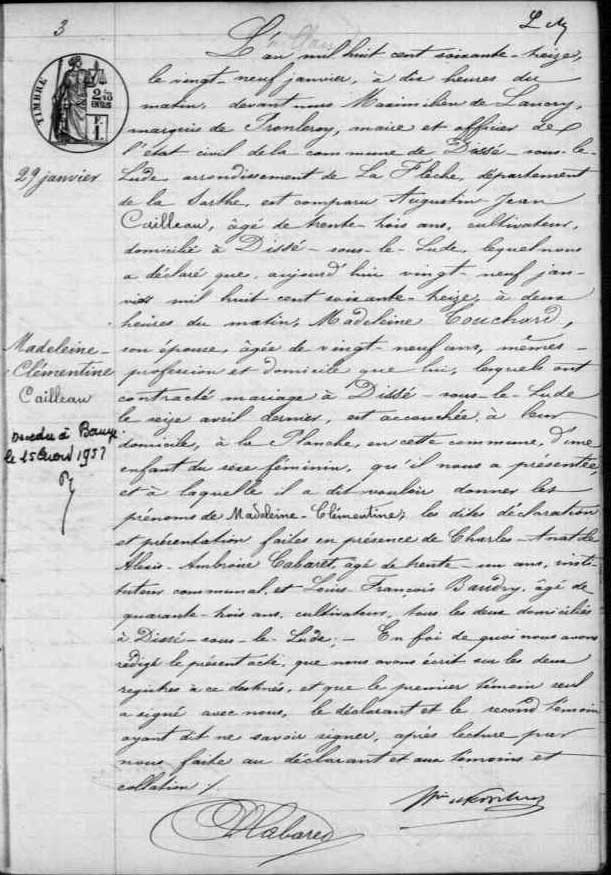 3
TIMBRE
29 janvier
Madeleine-
Clémentine
Cailleau
décédée à
le 25 1957
L'an mil huit cent soixante-seize,
le vingt-neuf janvier, à dix heures du
matin, devant nous Maximilien de
marquis de Pronleroy, maire et officier de
l'état civil de la commune de Dissé-sous-le-
Lude, arrondissement de La Flèche, département
de la Sarthe, est comparu Augustin Jean
Cailleau, âgé de trente-trois ans, cultivateur,
domicilié à Dissé-sous-le-Lude, lequel nous
a déclaré que, aujourd'hui vingt-neuf jan-
vier mil huit cent soixante-seize, à deux
heures du matin, Madeleine Touchard,
son épouse, âgée de vingt-neuf ans, mêmes
profession et domicile que lui, lesquels ont
contracté mariage à Dissé-sous-le-Lude
le seize avril dernier, est accouchée, à leur
domicile, à la Planche, en cette commune, d'une
enfant du sexe féminin, qu'il nous a présentée,
et à laquelle il a dit vouloir donner les
prénoms de Madeleine-Clémentine; les dites déclaration
et présentation faites en présence de Charles-Anatole
Alexis-Ambroise Cabaret, âgé de trente-un ans, insti-
tuteur communal, et Louis-François Baudry, âgé de
quarante-trois ans, cultivateur, tous les deux domiciliés
à Dissé-sous-le-Lude. - En foi de quoi nous avons
rédigé le présent acte, que nous avons écrit sur les deux
registres à ce destinés, et que le premier témoin seul
a signé avec nous, le déclarant et le second témoin
ayant dit ne savoir signer, après lecture par
nous faite au déclarant et aux témoins et
collation ./.
Cabaret